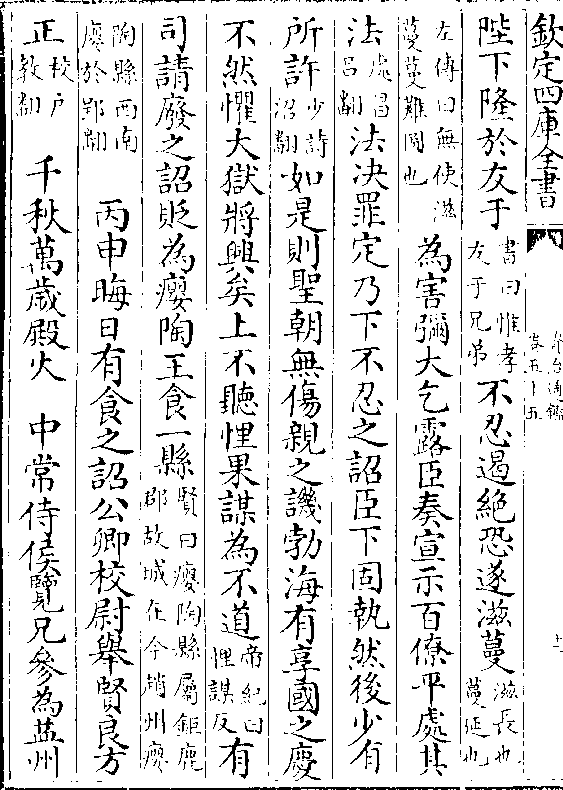 欽定四庫全書
通鑑
卷五十五
陛下隆於友于書曰惟孝友于兄弟不忍遏絕恐遂滋蔓滋長也蔓延也
左傳曰無使滋蔓蔓難圖也為害彌大乞露臣奏宣示百僚平處其
法處昌呂翻法决罪定乃下不忍之詔臣下固執然後少有
所許少詩沼翻如是則聖朝無傷親之譏勃海有享國之慶
不然懼大獄將興矣上不聽悝果謀為不道帝紀曰悝謀反有
司請廢之詔貶為癭陶王食一縣賢曰癭陶縣屬鉅鹿郡故城在今趙州癭
陶縣西南癭於郢翻 丙申晦日有食之詔公卿校尉舉賢良方
正校户教翻 千秋萬歲殿火 中常侍侯覽兄參為益州